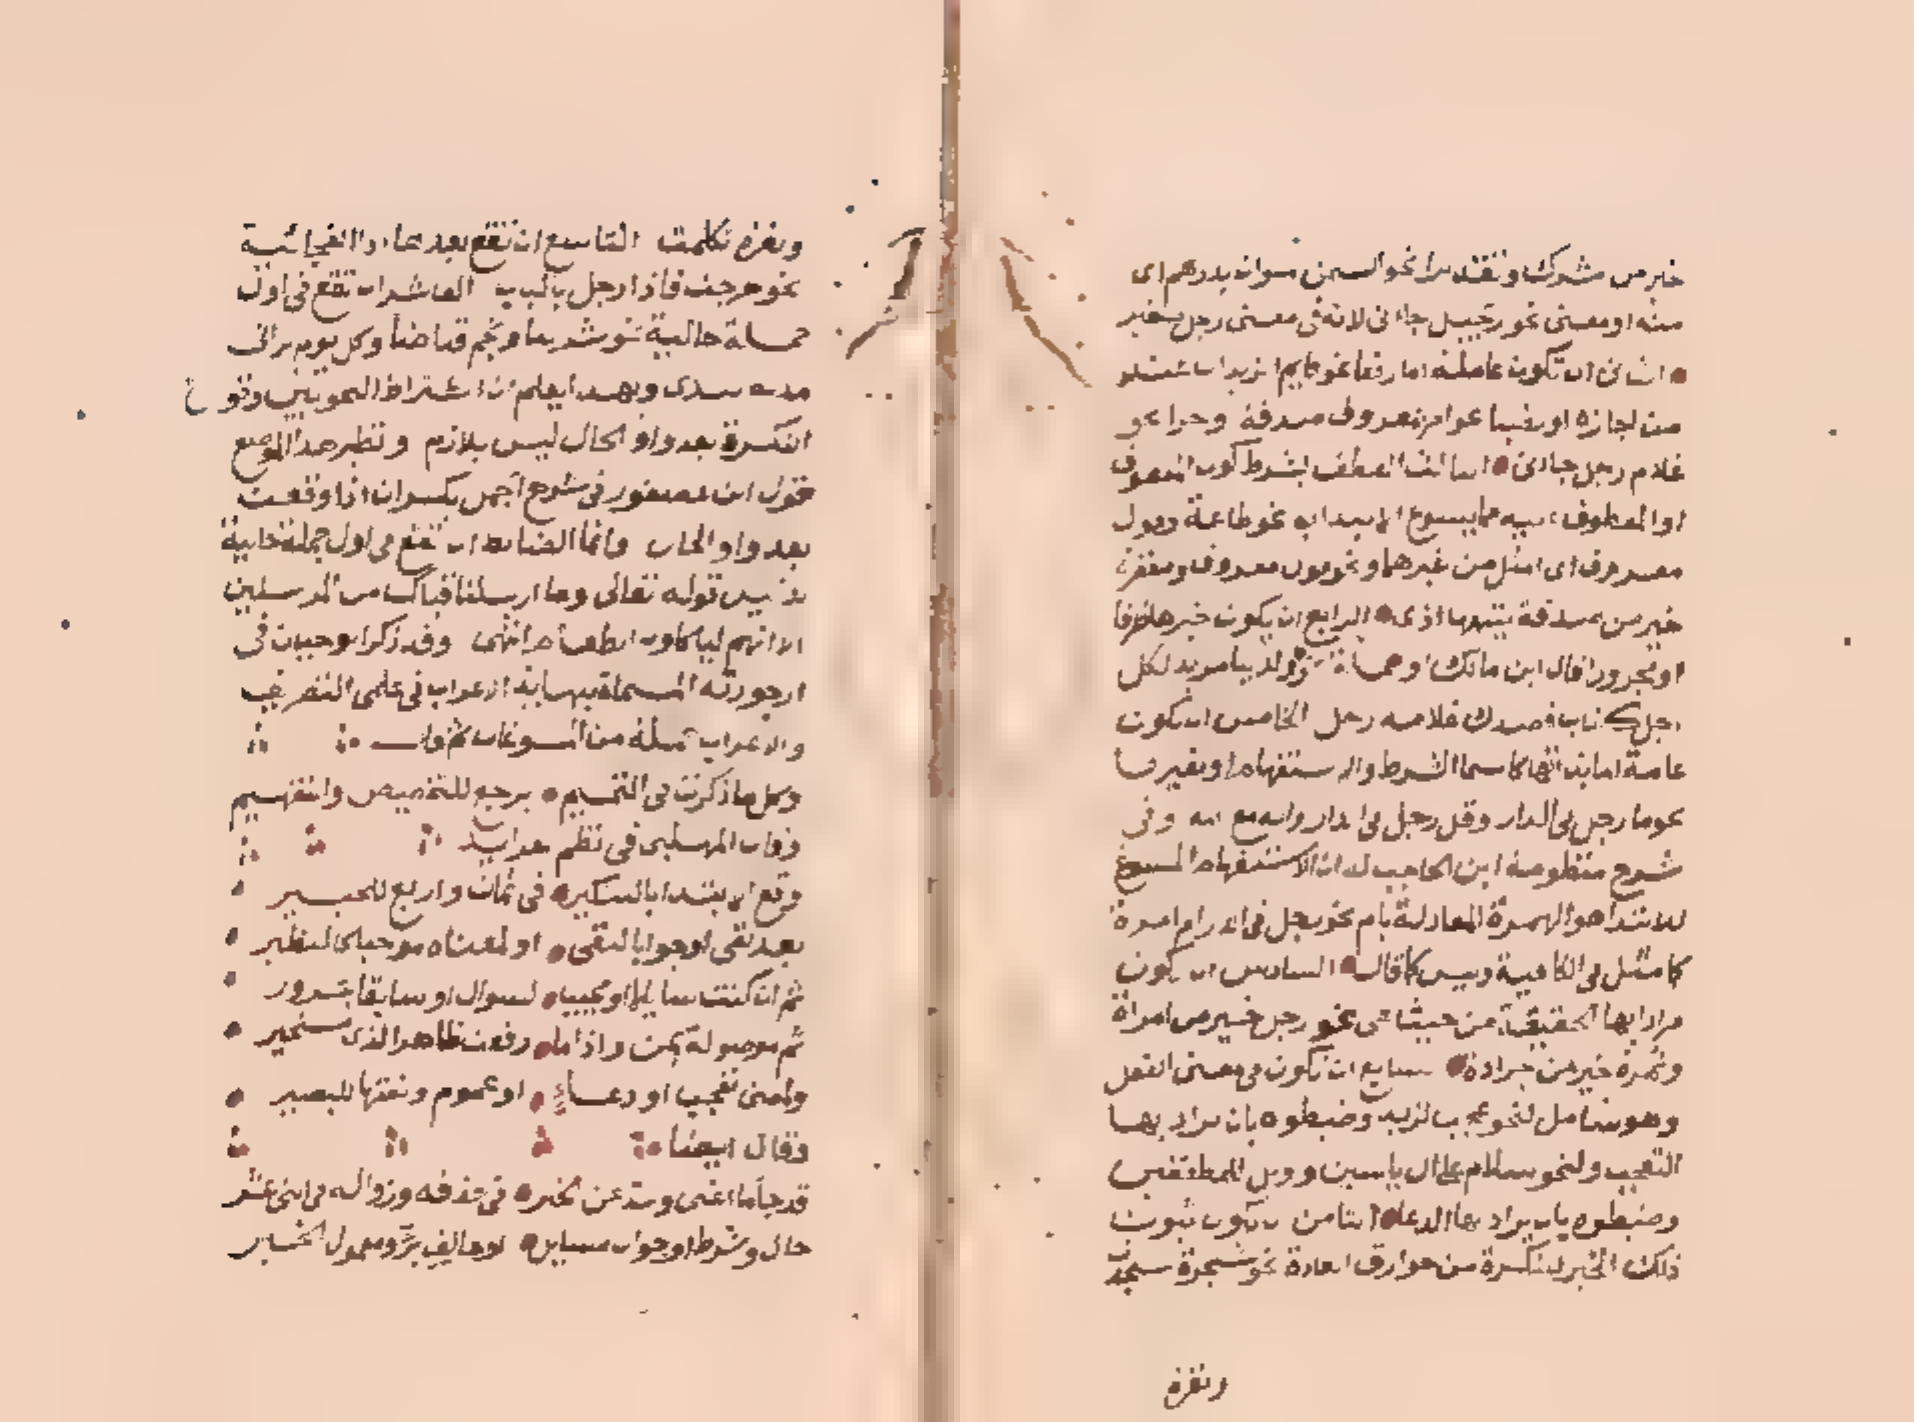 خير من مشرك وتقديرا نحو السمن منوان بدرهم اى
منه او معنى نحو رجيل جاءنى لانه فى معنى رجل صغير
الثانى ان تكون عاملة اما رفعا نحو قايم الزيدان عند
من اجازه او نصبا نحو امر بمعروف صدقة وجرا نحو
غلام رجل جاءنى الثالث العطف بشرط كون المعطوف
او المعطوف عليه مما يسوغ الابتداء به نحو طاعة وقول
معروف اى امثل من غيرهما ونحو قول معروف ومغفرة
خير من صدقة يتبعها اذى الرابع ان يكون خبرها ظرفا
او مجرورا قال ابن مالك او جملة نحو ولدينا مزيد لكل
اجل كتاب قصدك غلامه رجل الخامس ان تكون
عامة اما بذاتها كاسما الشرط والاستفهام او بغيرها
نحو ما رجل فى الدار وهل رجل فى الدار واله مع الله وفى
شرح منظومة ابن الحاجب له ان الاستفهام المسوغ
للابتدا هو الهمزة المعادلة بام نحو رجل فى الدار ام امرة
كما مثل فى الكافية وليس كما قال السادس ان تكون
مرادا بها الحقيقة من حيث هى نحو رجل خير من امراة
وتمرة خير من جرادة السابع ان تكون فى معنى الفعل
وهو شامل لنحو عجب لزيد وضبطوه بان يراد بها
التعجب ولنحو سلام على ال ياسين وويل للمطففين
وضبطوه بان يراد بها الدعا الثامن ان يكون ثبوت
ذلك الخبر للنكرة من خوارق العادة نحو شجرة سجدت
وبقرة
وبقرة تكلمت التاسع ان تقع بعد اذا الفجائية
نحو خرجت فاذا رجل بالباب العاشر ان تقع فى اول
جملة حالية نحو سرينا ونجم قد اضا وكل يوم ترانى
مدية بيدى وبهذا يعلم ان اشتراط النحويين وقوع
النكرة بعد واو الحال ليس بلازم ونظير هذا الموضع
قول ابن عصفور فى شرح الجمل تكسر ان اذا وقعت
بعد واو الحال وانما الضابط ان تقع فى اول جملة حالية
بدليل قوله تعالى وما ارسلنا قبلك من المرسلين
الا انهم لياكلون الطعام انتهى وقد ذكر ابو حيان فى
ارجوزته المسماة بنهاية الاعراب فى علمى التصريف
والاعراب جملة من المسوغات ثم قال
وكل ما ذكرت فى التقسيم يرجع للتخصيص والتعميم
وقال المهلبى فى نظم
وقع الابتدا بالتنكير فى ثمان واربع للخبير
بعد نفى او جوابا لنفى او لمعناه موجبا كالنظير
ثم ان كنت سايلا او مجيبا لسوال او سابقا بجرور
ثم موصولة بمن واذا ما رفعت ظاهرا لذى مستخير
ولمعنى تعجب او دعاء او عموم ونعتها للبصير
وقال ايضا
قد جا ما اغنى وسد عن خبر فى حذفه وزواله فى اثنى عشر
حال وشرط او جواب مسايل او حالف ومعمول الخبر